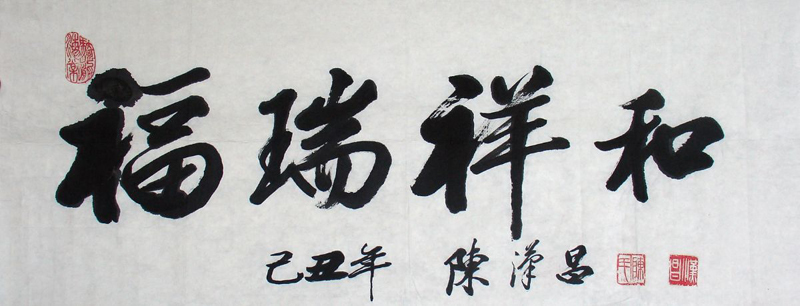 福瑞祥和
己丑年 陳漢昌